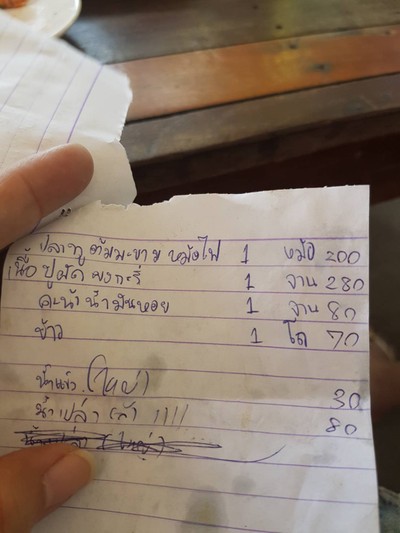 ปลาทูต้มมะขาม หม้อไฟ 1 หม้อ 200
เนื้อปูผัดผงกะหรี่ 1 จาน 280
คะน้าน้ำมันหอย 1 จาน 80
ข้าว 1 โถ 70
น้ำแข็ง (ใหญ่) 30
น้ำเปล่า เล็ก //// 80